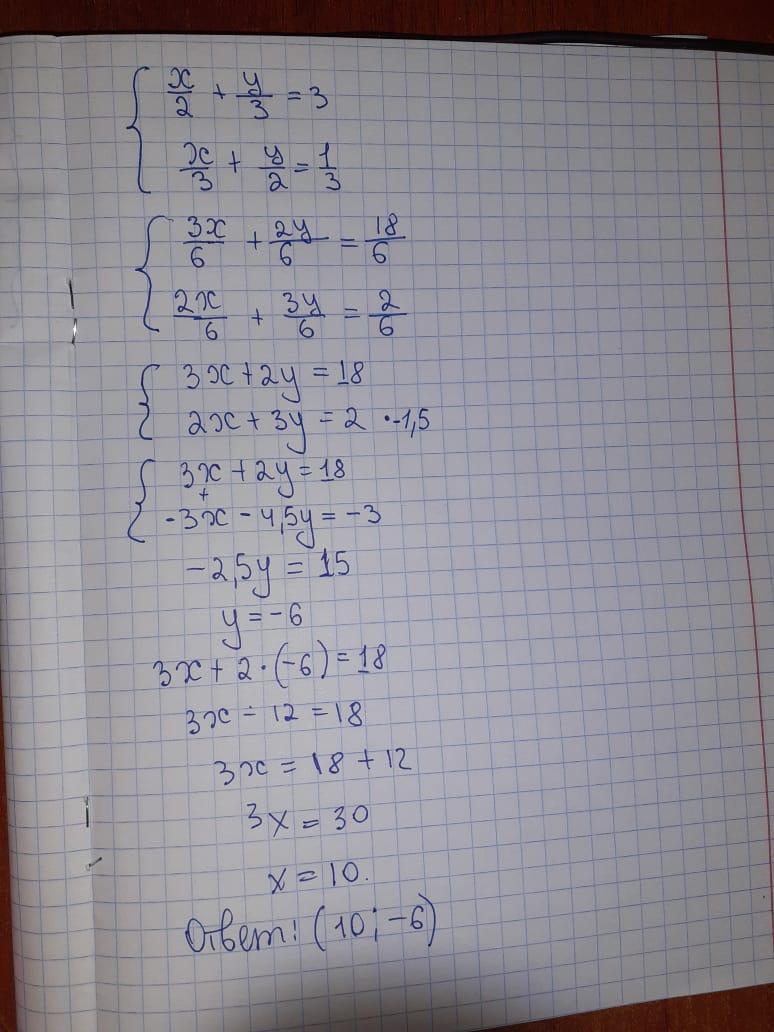 x/2 + y/3 = 3
x/3 + y/2 = 1/3
3x/6 + 2y/6 = 18/6
2x/6 + 3y/6 = 2/6
3x + 2y = 18
2x + 3y = 2 · -1,5
3x + 2y = 18
+
-3x - 4,5y = -3
-2,5y = 15
y = -6
3x + 2 · (-6) = 18
3x - 12 = 18
3x = 18 + 12
3x = 30
x = 10.
Ответ: (10; -6)